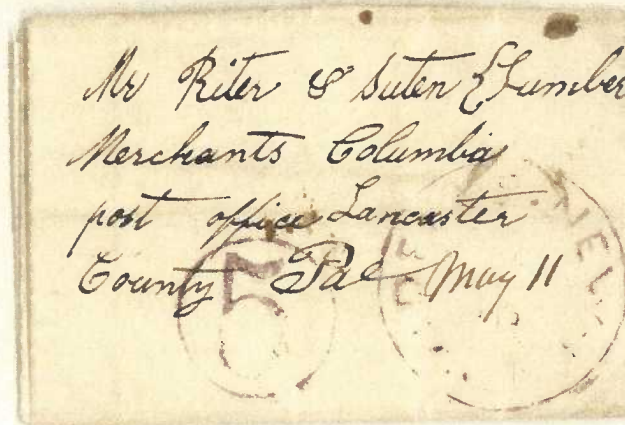 Mr Riter & Suten { Lumber
Merchants Columbia
post office Lancaster
County Pae May 11
5